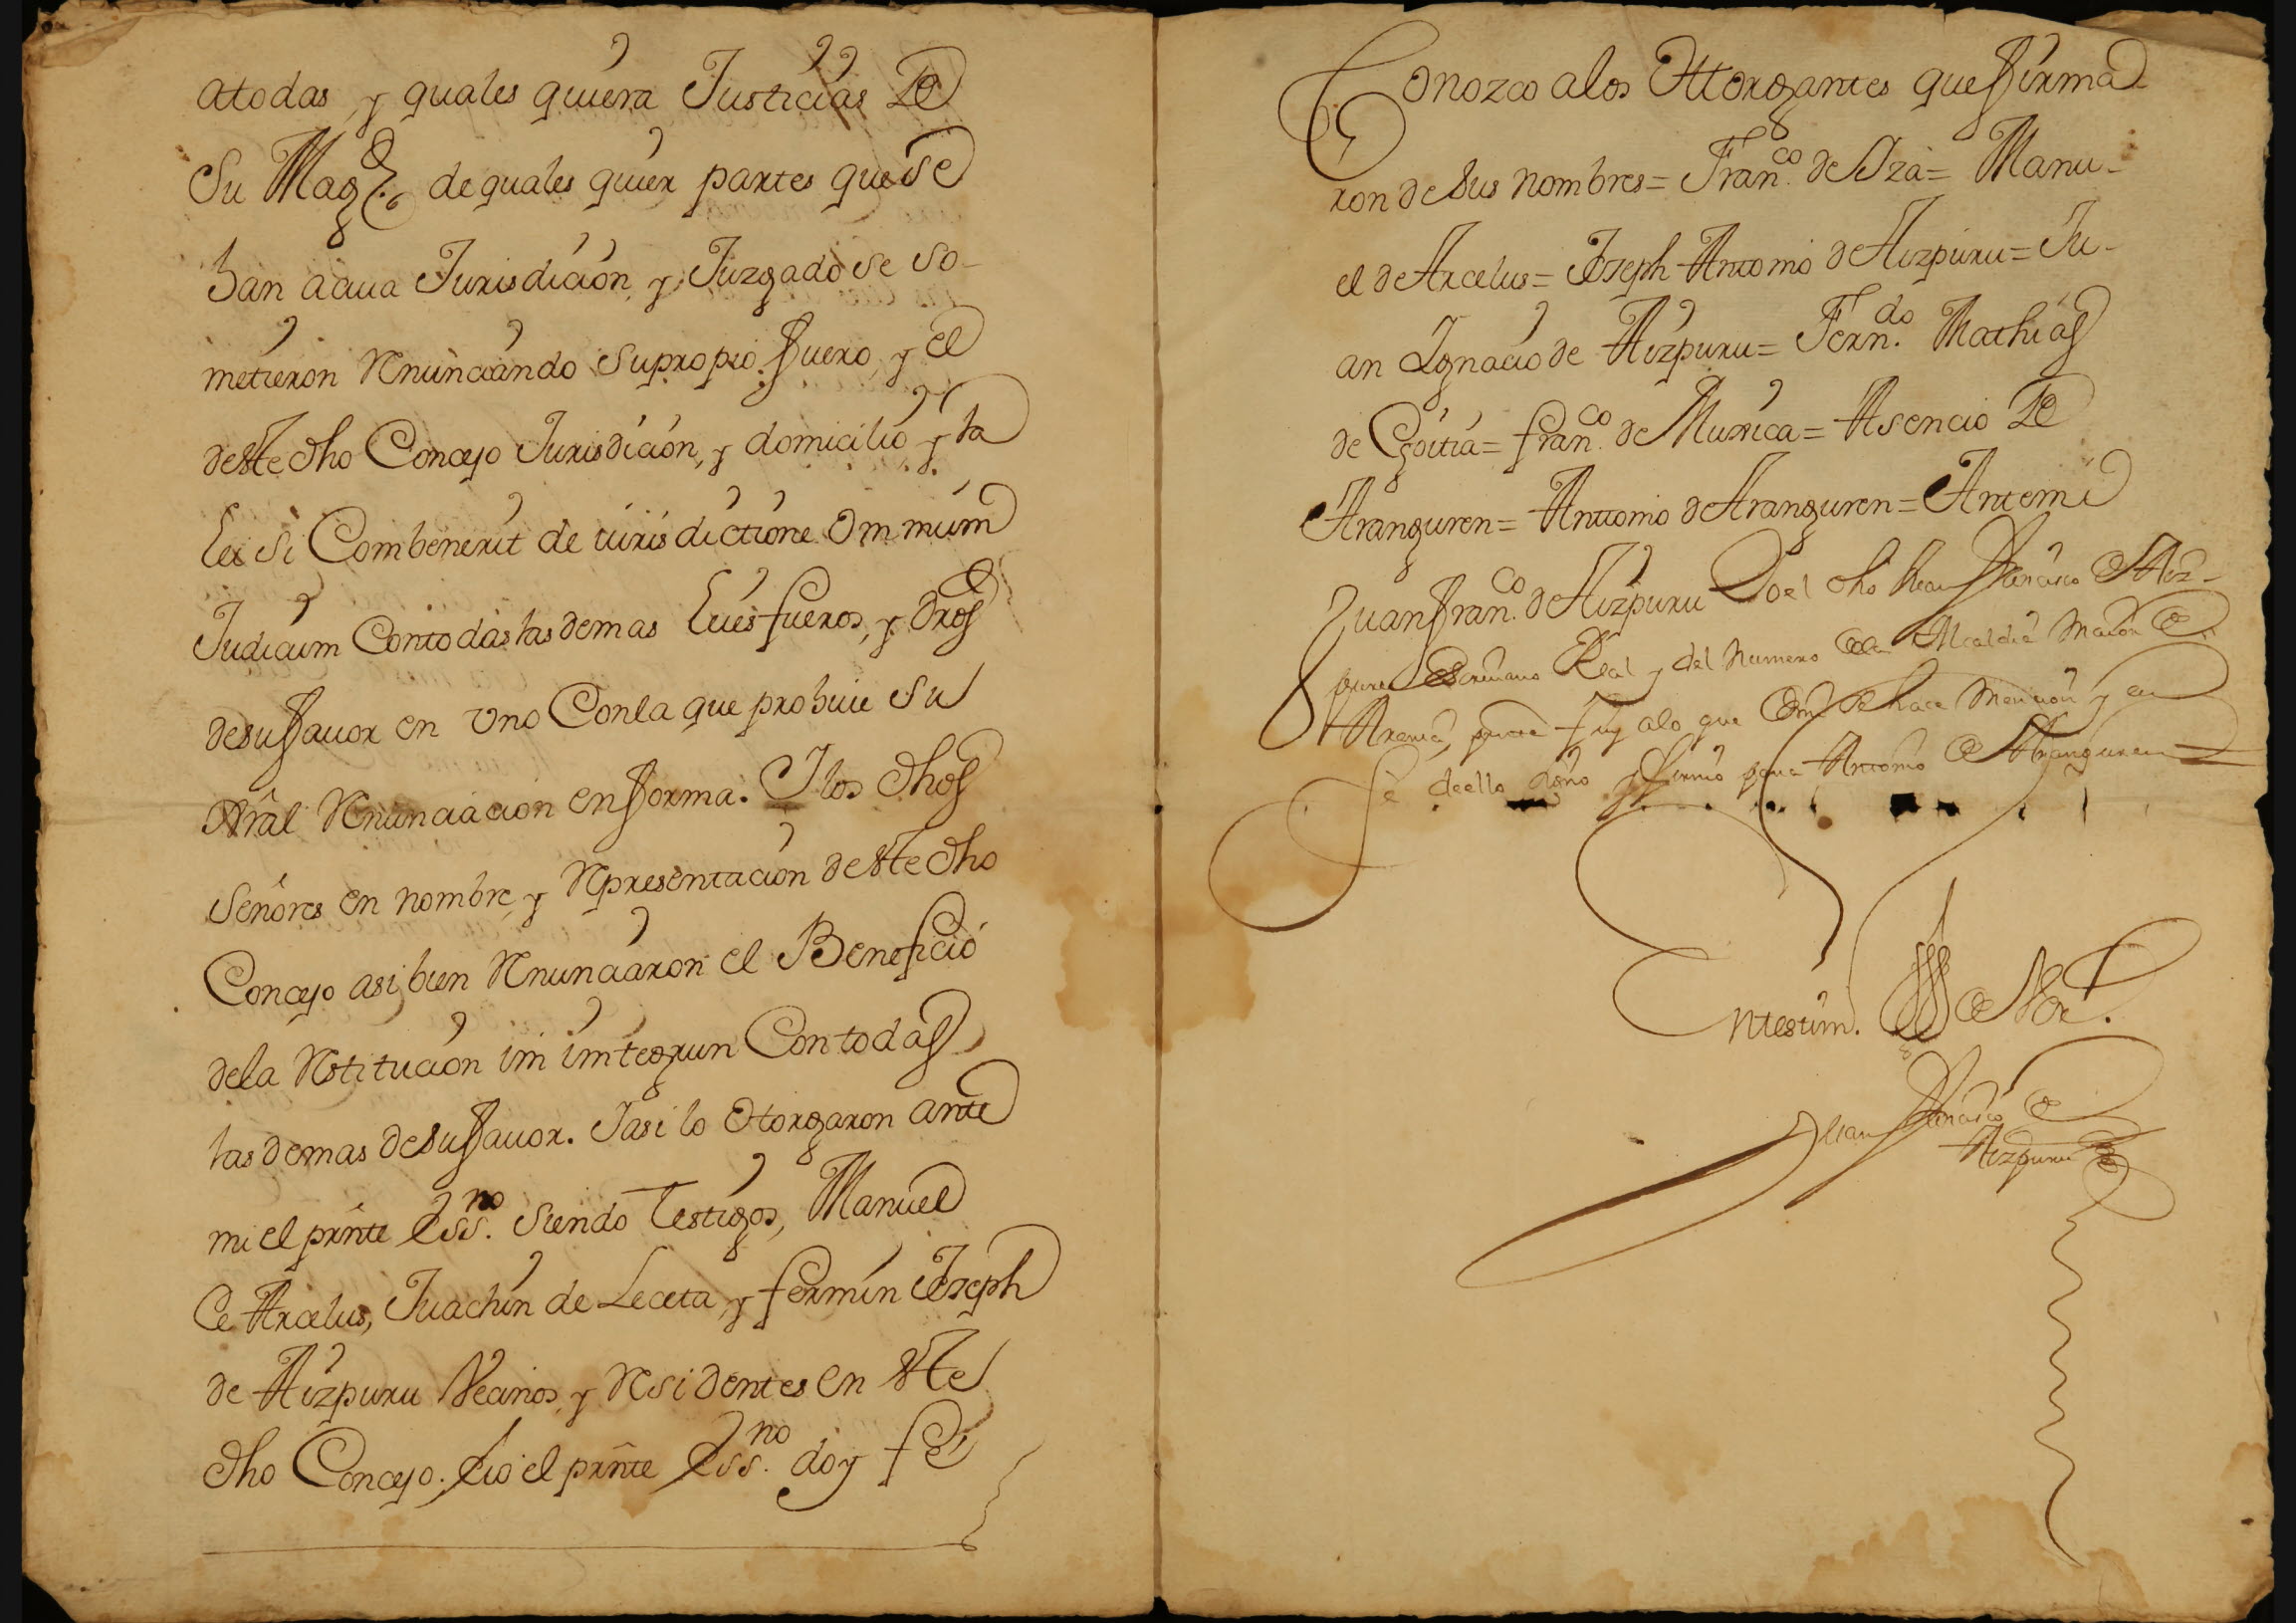 atodas, y quales quiera Justicias De
Su Magd. de quales quier partes que se
han acuia Jurisdición, y Juzgado se so-
metieron Renunciando supropio fuero, y el
deste dho Concejo Jurisdición, y domicilio y la
Lei Si Combenerit de iurisdictione Omnium
Judicum Contodas las demas Leies fueros, y dros
desufauor en vno Conla que prohiue su
Gral Renunciacion enforma. I los dhos
Señores en nombre, y Representación deste dho
Concejo asi bien Renunciaron el Beneficio
dela Restitución im imtegrun Contodas
las demas desufauor. Iasi lo Otorgaron ante
mi el printe Essno. Siendo Testigos, Manuel
de Arcelus, Juachin de Leceta, y fermin Joseph
de Aizpuru Vecinos, y Residentes en este
dho Concejo. Eio el printe Essno. doy fé
Conozco alos Ottorgantes que firma
ron de sus nombres = Franco. de Iza = Manu-
el de Arcelus = Joseph Antonio de Aizpuru = Ju-
an Ignacio de Aizpuru = Ferndo. Mathias
de Egoitia = franco. de Muxica = Asencio De
Aranguren = Anttonio de Aranguren = Antemi
Juan Franco. de Aizpuru Yo el dho Juan Francisco de Aiz-
puru Escriuano Real y del Numero dela Alcaldia Maior de
Areria, preste fuy alo que de mi se hace Mencion y en
Fe deello signo y firmo para Antonio de Aranguren
Entestim. de Ver.
Juan Francisco de
Aizpuru